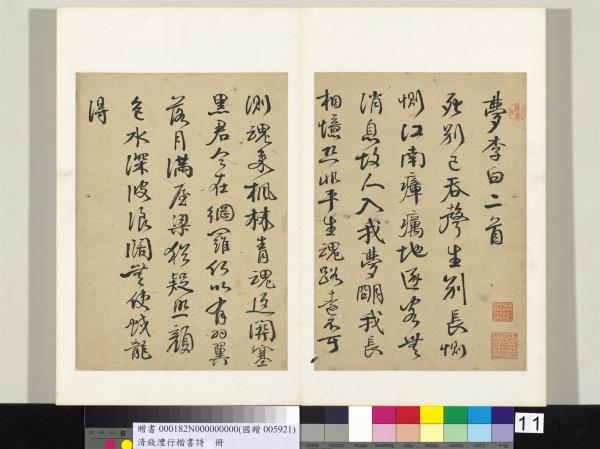 夢李白二首
死別已吞聲生別長惻
惻江南瘴癘地逐客無
消息故人入我夢明我長
相憶恐非平生魂路遠不可
測魂來枫林青魂返關塞
黑君今在網羅何以有羽翼
落月滿屋梁猶疑照顏
色水深波浪闊無使蛟龍
得
贈書 000182N000000000(國贈 005921)
清錢灃行楷書詩 冊
11